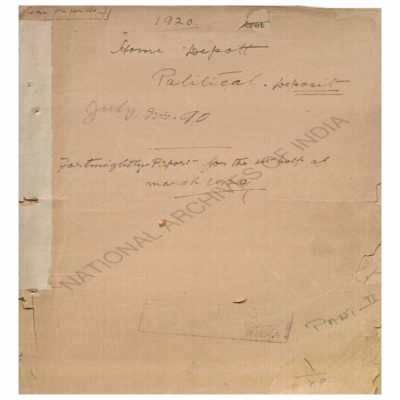 1920
Home Depott
Political. Deposit
July. No. 90
Fortnightly Report for the 1st half of
march 1920
NATIONAL ARCHIVES OF INDIA
PART II
1